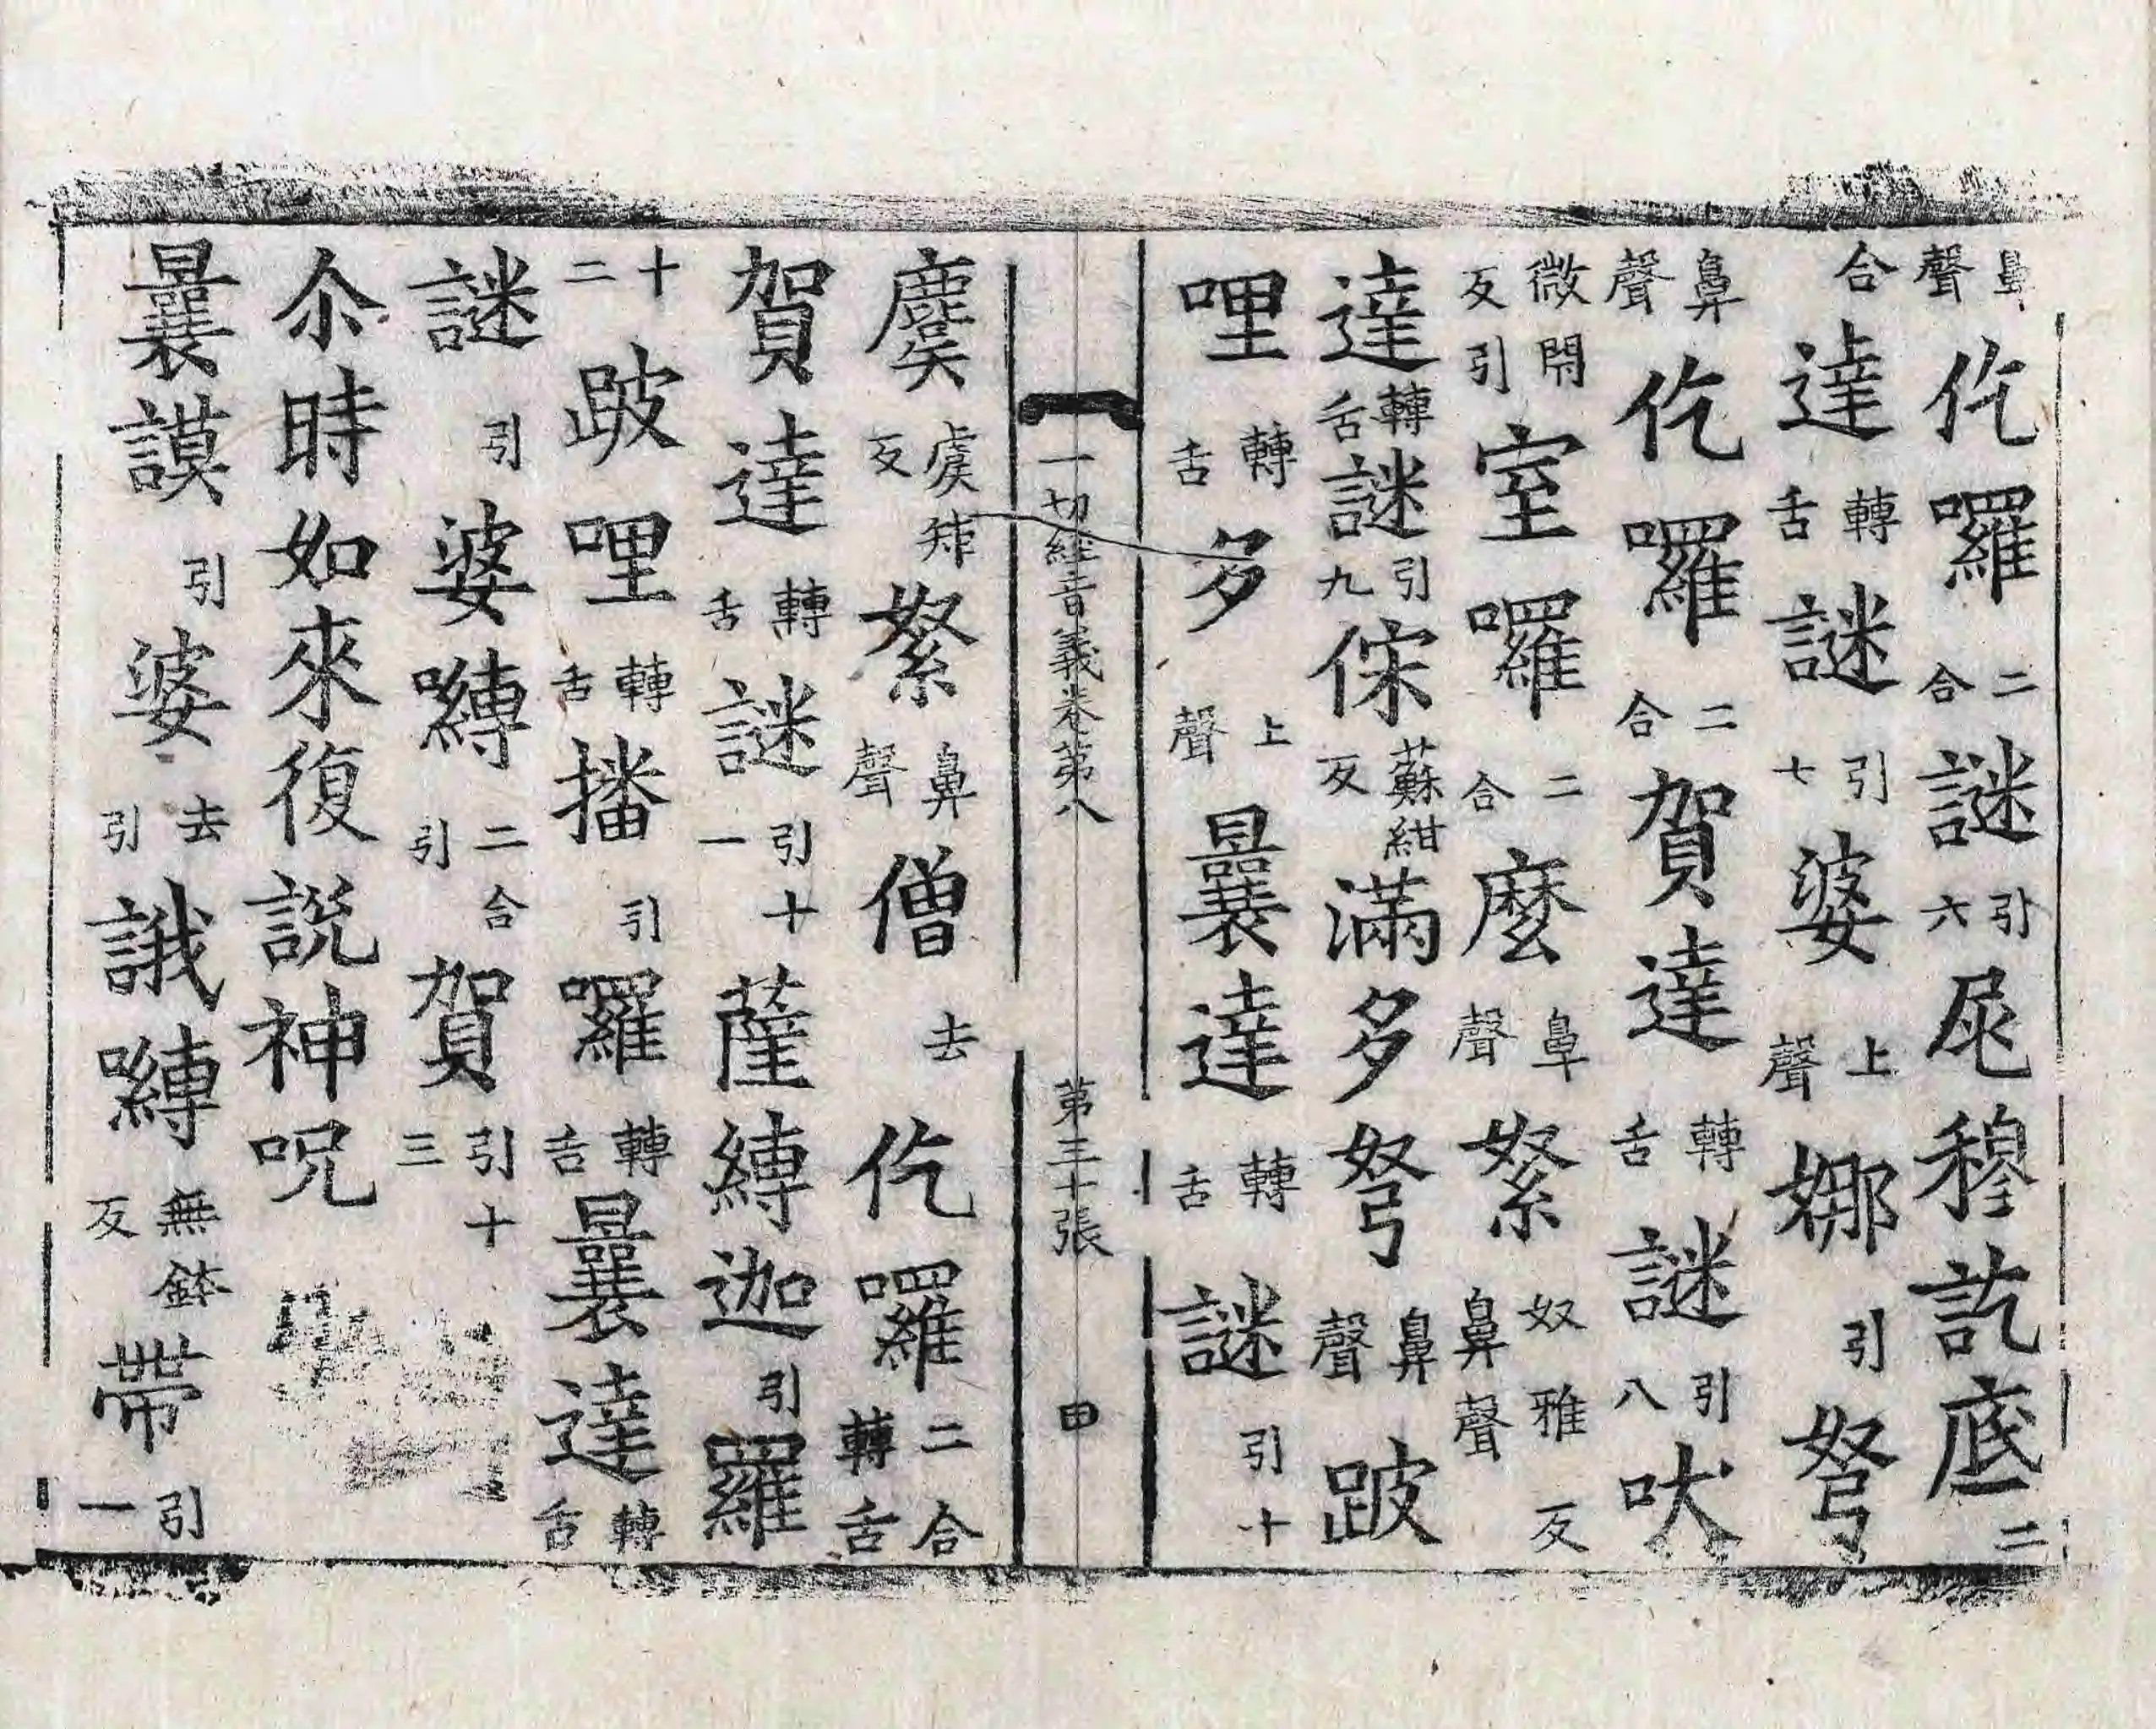 鼻聲仡囉二合謎引六尾穆訖底二
合達轉舌謎引七婆上聲娜引弩
鼻聲仡囉二合賀達轉舌謎引八吠
微閇反引室囉二合麼鼻聲䋈奴雅反鼻聲
達轉舌謎引九𠈱蘇紺反滿多弩鼻聲跛
哩轉舌多上聲曩達轉舌謎引十
一切經音義卷第八　第三十張　甲
麌虞矩反䋈鼻聲僧去仡囉二合轉舌
賀達轉舌謎引十一薩縛迦引羅
十二跛哩轉舌播引囉轉舌曩達轉舌
謎引婆嚩二合引賀引十三
尒時如來復説神呪
曩謨引婆去引誐嚩無鉢反帶引一